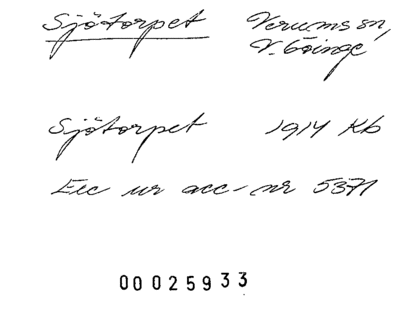 Sjötorpet Verums sn,
V. Göinge
Sjötorpet 1914 Kb
Exc ur acc-nr 5371
00025933